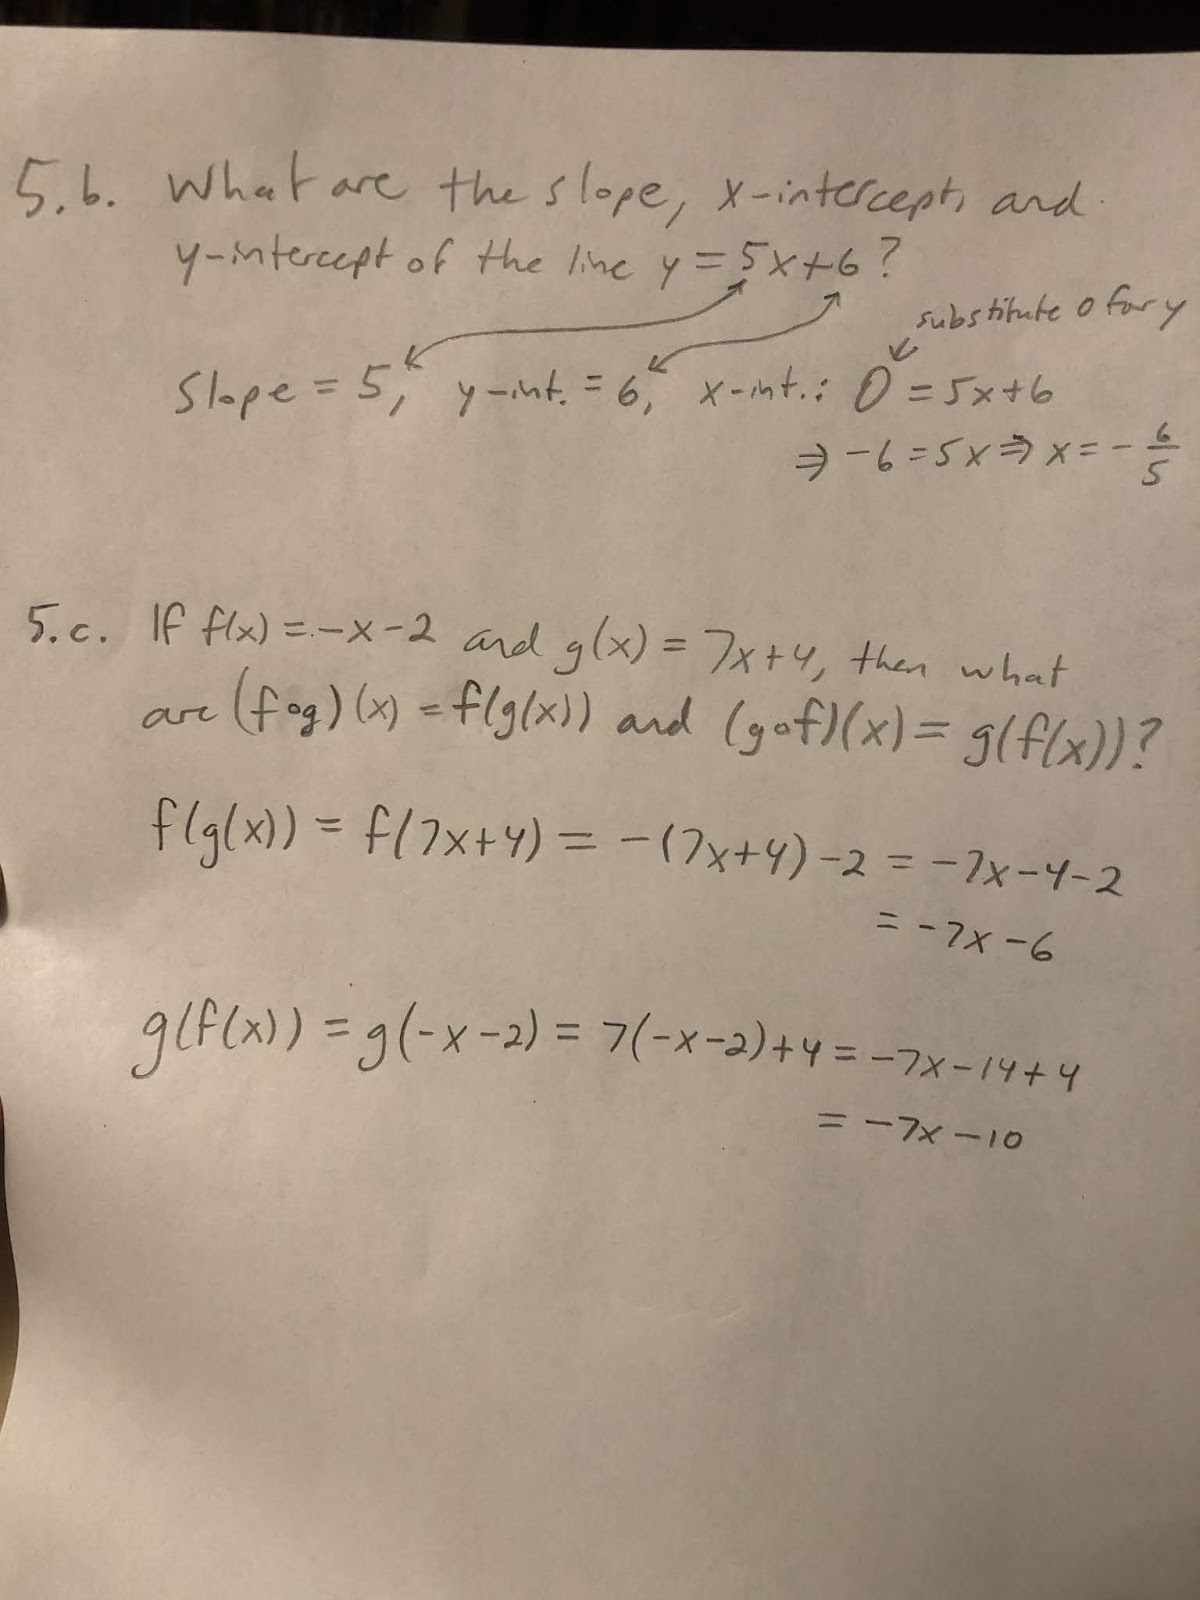 5.b. What are the slope, x-intercept, and
y-intercept of the line y = 5x+6?
substitute 0 for y
Slope = 5, y-int. = 6, x-int.: 0 = 5x+6
⇒ -6 = 5x ⇒ x = - 6/5
5.c. If f(x) = -x-2 and g(x) = 7x+4, then what
are (f∘g)(x) = f(g(x)) and (g∘f)(x) = g(f(x))?
f(g(x)) = f(7x+4) = -(7x+4)-2 = -7x-4-2
= -7x-6
g(f(x)) = g(-x-2) = 7(-x-2)+4 = -7x-14+4
= -7x-10